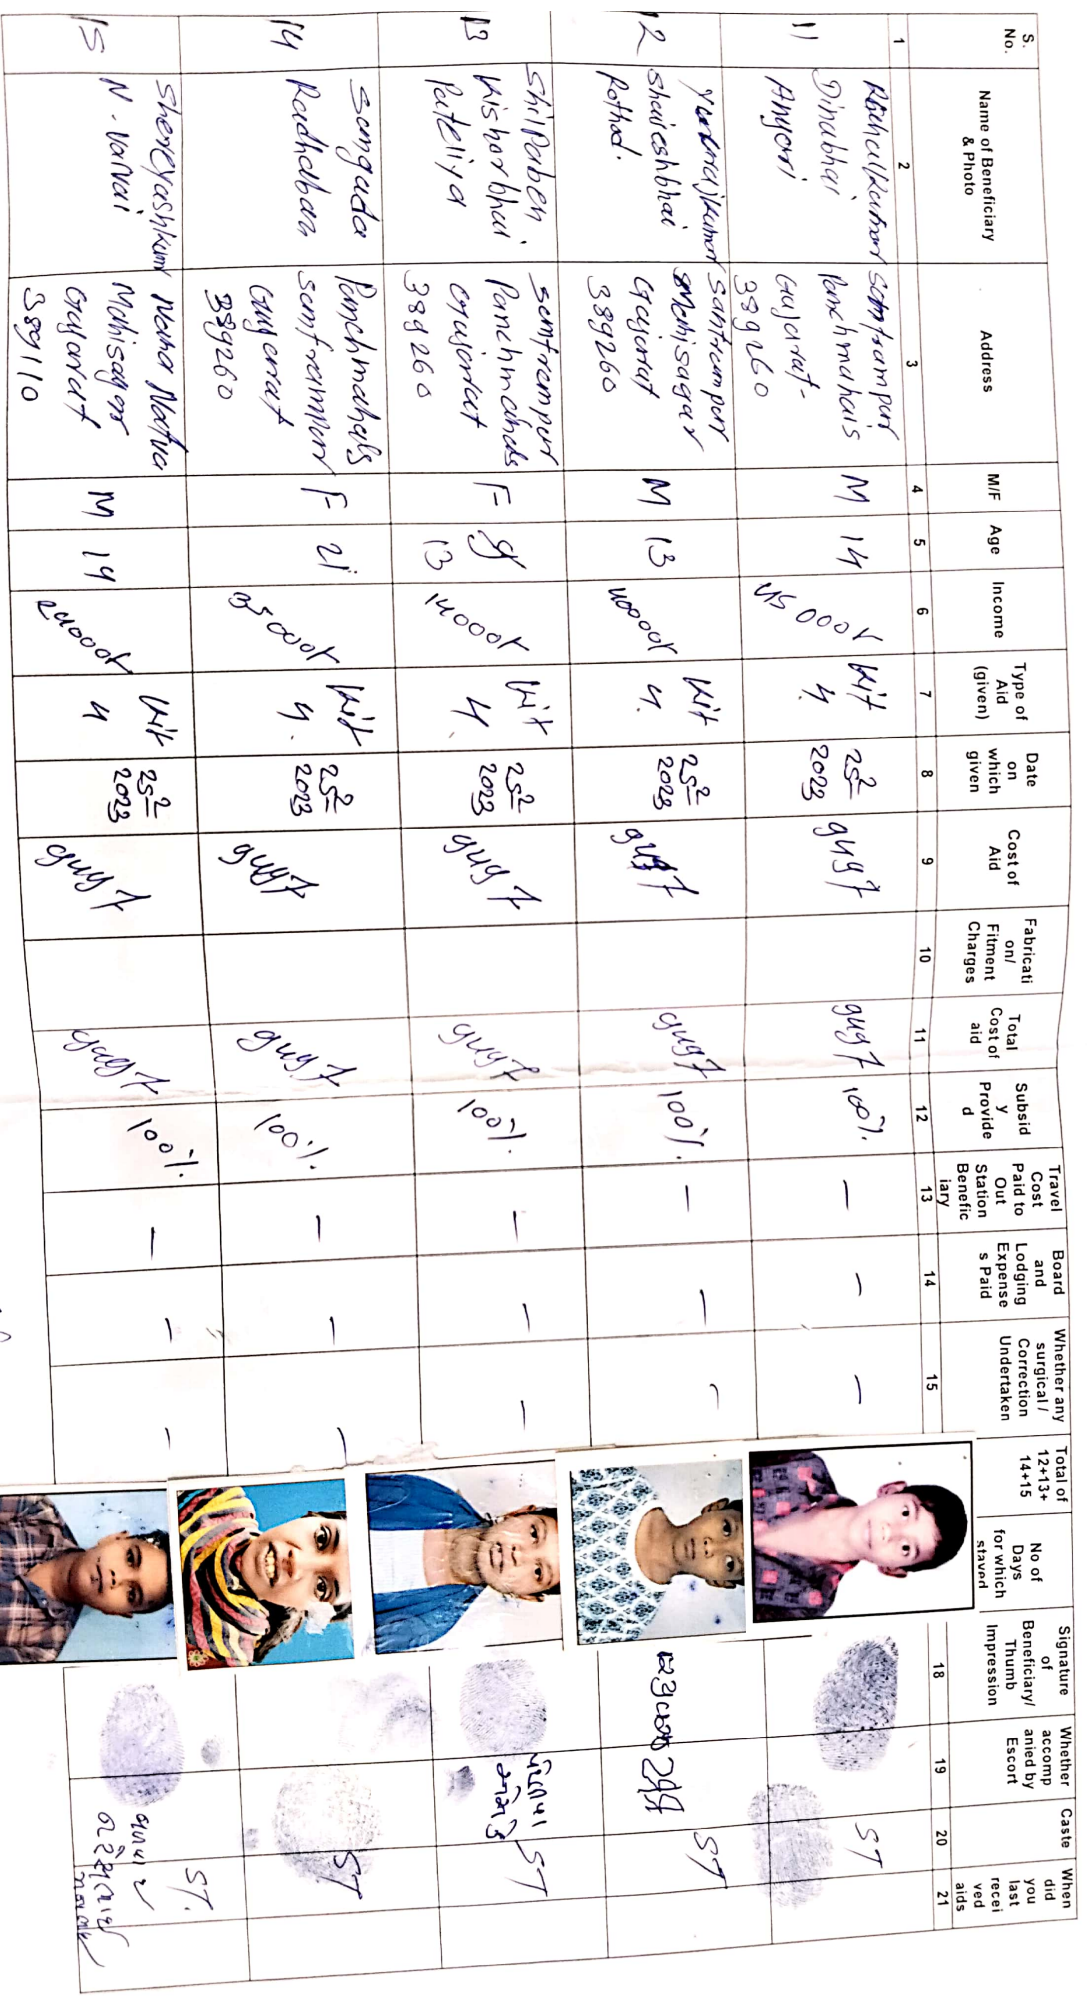 S. No.
Name of Beneficiary & Photo
Address
M/F
Age
Income
Type of Aid (given)
Date on which given
Cost of Aid
Fabricati on/ Fitment Charges
Total Cost of aid
Subsid y Provide d
Travel Cost Paid to Out Station Benefic iary
Board and Lodging Expense s Paid
Whether any surgical / Correction Undertaken
Total of 12+13+ 14+15
No of Days for which stayed
Signature of Beneficiary/ Thumb Impression
Whether accomp anied by Escort
Caste
When did you last recei ved aids
1 2 3 4 5 6 7 8 9 10 11 12 13 14 15 18 19 20 21
11
Dinubhai
Panchmahals
Gujarat-
389260
M 14
Kit 4.
25 2 2023
9497 9497 100%. — — —
ST
12
Shaileshbhai
Rathod.
Santrampur
Mahisagar
Gujarat
389260
M 13
40000r
Kit 4.
25 2 2023
9497 100%. — — —
ST
13
Shilpaben
Kishorbhai
Pateliya
Santrampur
Panchmahals
Gujarat
389260
F
13
14000r
Kit 4.
25 2 2023
9497 9497 100%. — — —
ST
14
Sangada
Radhaban
Panchmahals
Santrampur
Gujarat
389260
F 21
Kit 4.
25 2 2023
9497 9497 100%. — — —
ST
15
N. Valvai
Mahisagar
Gujarat
M 14
Kit 4
25 2 2023
9497 9497 100%. — — —
ST.